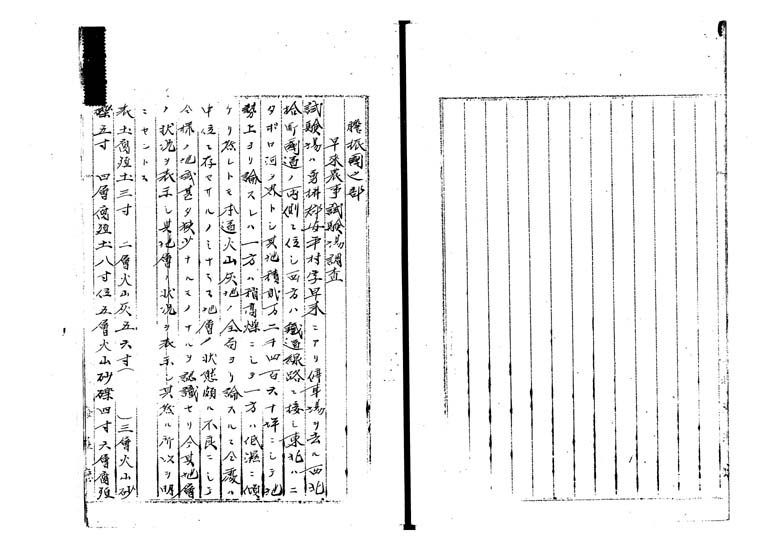 膽振國之部
早来農事試驗場調査
試驗場ハ勇拂郡安平村字早来ニアリ停車場ヲ去ル西北
拾町國道ノ両側ニ位シ西方ハ鐵道線路ニ接シ東北ハニ
タポロ河ヲ界トシ其地積貳万二千四百六十坪ニシテ地
勢上ヨリ論スレハ一方ハ稍高燥ニシテ一方ハ低濕ニ傾
ケリ然レトモ本道火山灰地ノ全局ヨリ論スルモ全度ハ
中位ニ存セサルノミナラス地層ノ状態頗ル不良ニシテ
今様ノ地或甚タ狭少ナルモノナルヲ認識セリ今其地層
ノ状況ヲ表示シ其地層ノ状況ヲ表示シ其然ル所以ヲ明
ニセントス
表土腐殖土三寸 二層火山灰五六寸( )三層火山砂
礫五寸 四層腐殖土八寸位五層火山砂礫四寸六層腐殖